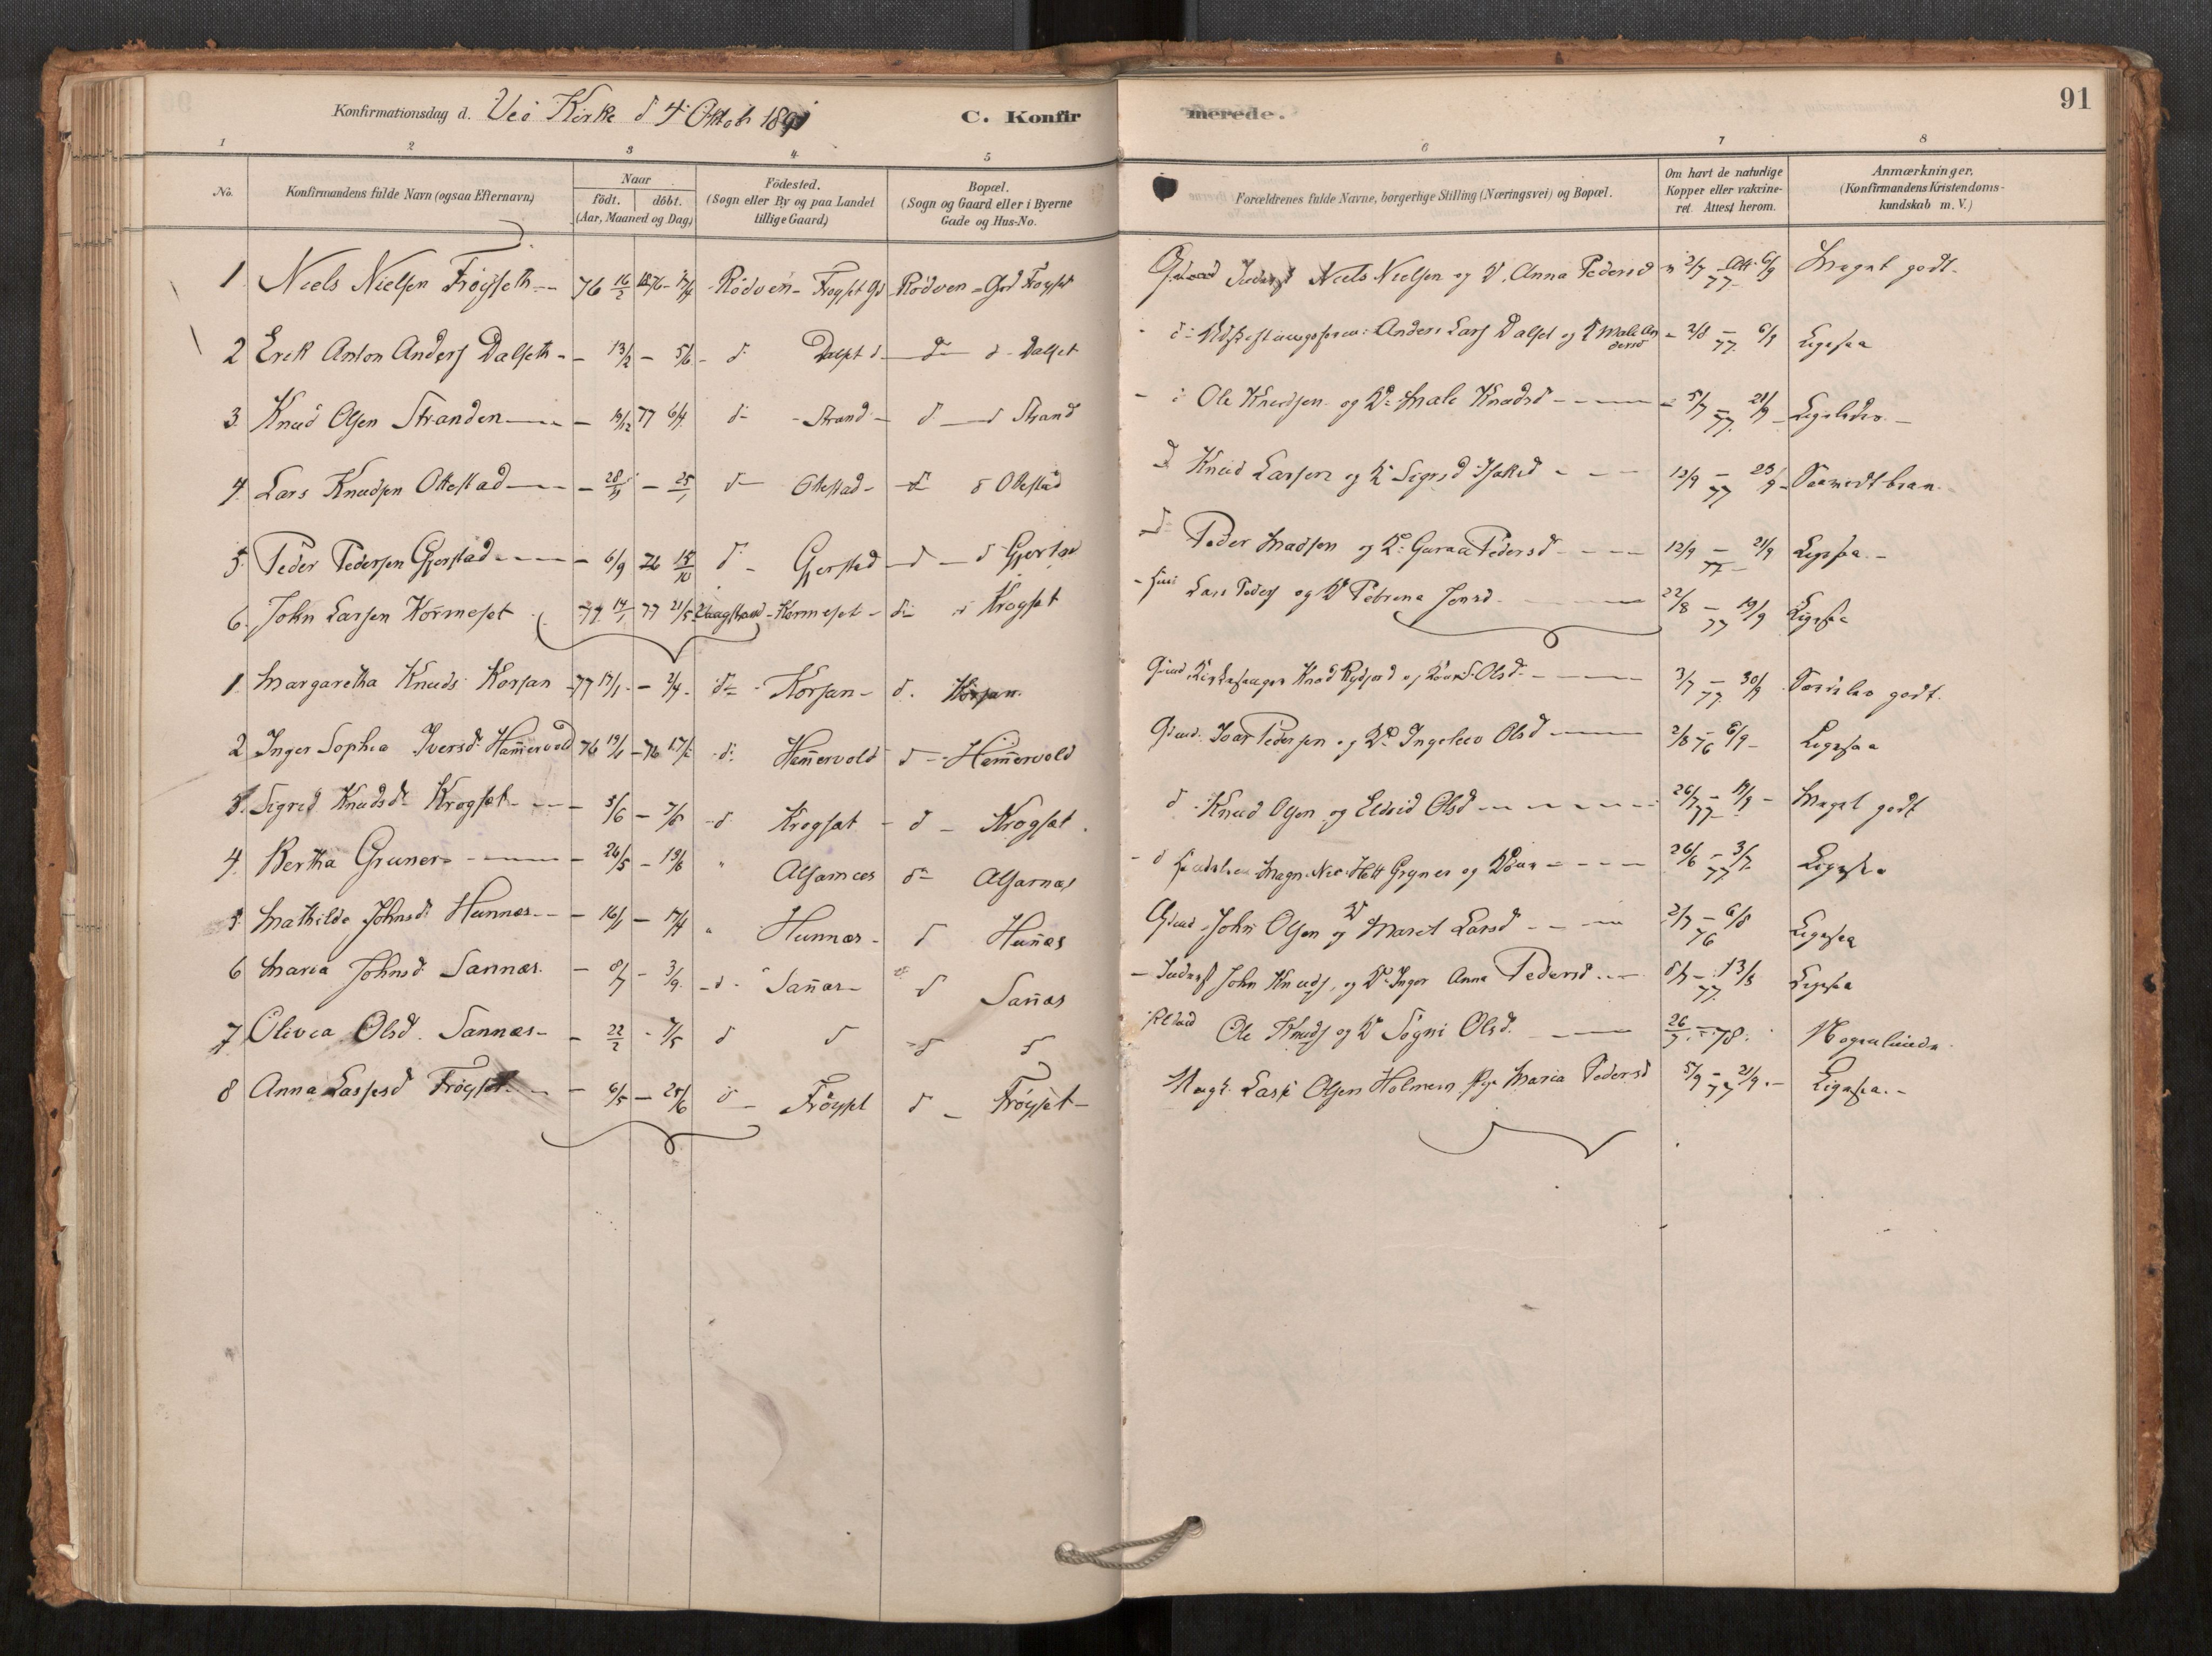 91
Konfirmationsdag d. Veö Kirke d 4 Oktob 1891 C. Konfirmerede.
1 2 3 4 5 6 7 8
No. Konfirmandens fulde Navn (ogsaa Efternavn) Naar födt. döbt. (Aar, Maaned og Dag) Födested. (Sogn eller By og paa Landet tillige Gaard) Bopæl. (Sogn og Gaard eller i Byerne Gade og Hus-No. Forældrenes fulde Navne, borgerlige Stilling (Næringsvei) og Bopæl. Om havt de naturlige Kopper eller vakcineret. Attest herom. Anmærkninger. (Konfirmandens Kristendomskundskab m. V.)
1. Niels Nielsen Fröyseth 76 16/2 1876 17/4 Rödven - Froyset Gd Rödven - Gd Froyset Inderst Niels Nielsen og K. Anna Pedersd 2/7 77 Att. 6/9 Meget godt.
2 Erik Anton Anders Dalseth - 13/2 - 5/6 - d Dalset d - d - d - Dalset Anders Lars Dalset og K Male Andersd - 2/8 - 77. 6/9 Ligesaa
3. Knud Olsen Stranden - 19/12 77 6/4 d - Strand - d - d Strand Ole Knudsen og K. Male Knudsd - 5/7 - 77. 21/9 - Ligeledes -
4. Lars Knudsen Ottestad - 28/11 - 25/1 d - Ottestad - d d Ottestad d Knud Larsen og K Sigrid Isaksd - 12/9 - 77 23/9 -
5. Peder Pedersen Gjerstad - 6/9 76 15/10 d - Gjerstad - d - d Peder Madsen og K. Guraa Pedersd - 12/9 - 77 21/9 Ligesaa -
6. John Larsen Kormeset 77 14/1 77 21/5 Vaagstrand - Kormeset - d d Krogset - Lars Peders og K Petrina Jonsd 22/8 - 77 19/9 Ligesaa
1. Margaretha Knuds Korsan 77 17/1 - 2/4 - d - Korsan - d. Korsan Gaard Kirkesanger Knud 3/7 - 77. 30/9 Særdeles godt.
2 Inger Sophia Iversd Hammervold 76 19/1 - 76 d. Hammervold d - Hammervold Gaard. Ivar Pedersen og K. Ingeleiv Olsd 2/8 - 76 6/9 - Ligesaa
3. Sigrid Knudsd Krogset - 3/6 - 7/5 - d Krogset - d - Krogset. d - Knud Olsen og Eldrid Olsd 26/7 - 77 19/9 - Meget godt
4. Bertha Gruner - 26/5 - 19/8 " Alfarnæs d - Alfarnæs - d 26/6 - 77 3/7. Ligesaa
5. Mathilde Johnsd Hunnæs - 16/1 - 17/4 " Hunnæs - d Hunæs Gaard - John Olsen og K Maret Larsd - 2/7 - 76 6/8 Ligesaa
6 Maria Johnsd Sannæs - 8/7 - 3/9. - d - Sannæs - d Sannæs - Inderst John Knuds, og K. Inger Anna Pedersd 6/7 - 77. 13/8 Ligesaa
7 Olivia Olsd. Sannæs - 22/2 - 7/5 d d - d d Ole Knuds og K Sögni Olsd. 26/7. - 78. Nogenlunde
8 Anna Lassesd Fröyset - 6/5 - 25/6 d - Fröyset d - Fröyset - Lasse Olsen Holmem Maria Pedersd 5/9 - 77 21/9. - Ligesaa. -